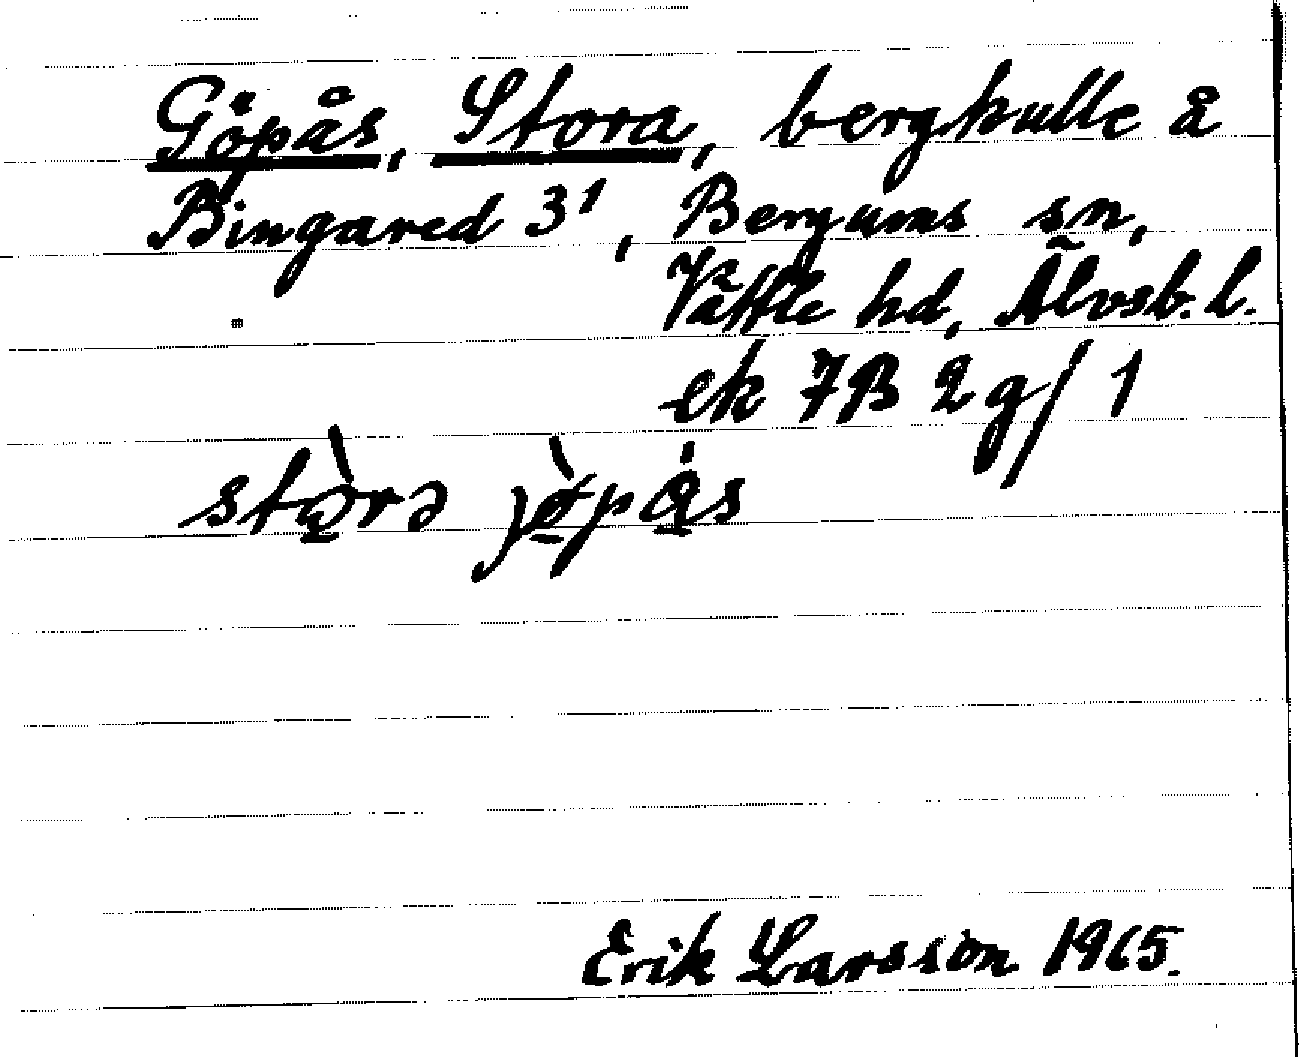 Göpås, Stora, bergkulle å
Bingared 3¹, Bergums sn,
Vättle hd, Älvsb. l.
ek 7B 2g/1
stọ̀rə jø̱̀på̱s
Erik Larsson 1965.